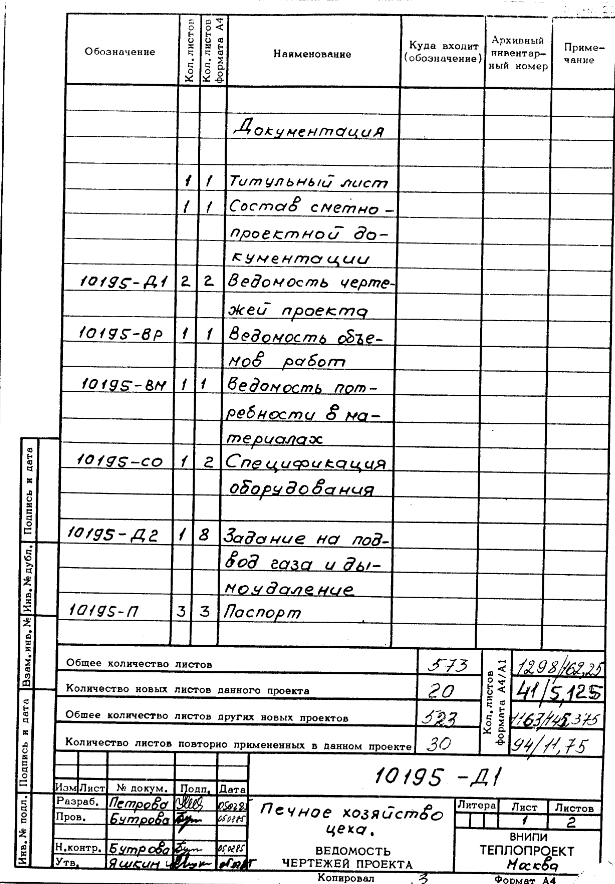 Обозначение Кол. листов Кол. листов формата А4 Наименование Куда входит (обозначение) Архивный инвентарный номер Примечание
Документация
1 1 Титульный лист
1 1 Состав сметно-
проектной до-
кументации
10195-Д1 2 2 Ведомость черте-
жей проекта
10195-ВР 1 1 Ведомость объе-
мов работ
10195-ВМ 1 1 Ведомость пот-
ребности в ма-
териалах
10195-СО 1 2 Спецификация
оборудования
10195-Д2 1 8 Задание на под-
вод газа и ды-
моудаление
10195-П 3 3 Паспорт
Кол. листов формата А4/А1
Общее количество листов 573 1298/162,25
Количество новых листов данного проекта 20 41/5,125
Общее количество листов других новых проектов 523 1163/145,375
Количество листов повторно примененных в данном проекте 30 94/11,75
10195-Д1
Изм Лист № докум. Подп. Дата
Разраб. Петрова
Пров. Бутрова
Н.контр. Бутрова
Утв. Яшкин
Печное хозяйство
цеха.
ВЕДОМОСТЬ
ЧЕРТЕЖЕЙ ПРОЕКТА
Литера Лист Листов
1 2
ВНИПИ
ТЕПЛОПРОЕКТ
Москва
Копировал 3 Формат А4
Подпись и дата
Инв. № дубл.
Взам. инв. №
Подпись и дата
Инв. № подл.